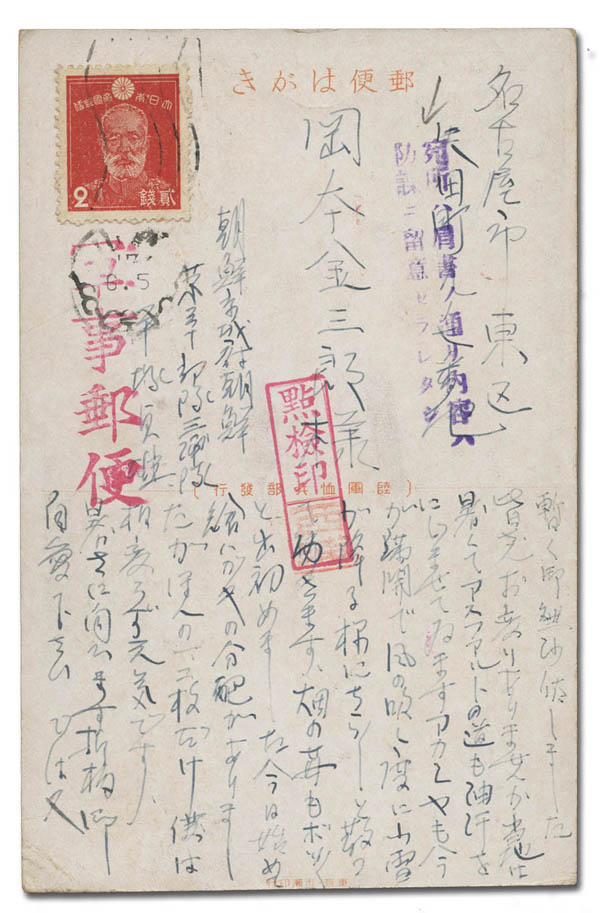 郵便はがき
大日本帝國郵便
貳錢
2
17.
6.5
軍事郵便
名古屋市東区
矢田町
岡本金三郎様
宛所ハ肩書ノ通リ
防諜ニ留意セラレタシ
點檢印
朝鮮京城府朝鮮
第二十部隊
(陸軍恤兵部發行)
暫く御無沙汰しました
皆先お変りありませんか当地は
暑くてアスファルトの道も油汗を
にじませてゐますアカシヤも今
が満開で風の吹く度に小雪
が降る様にちらちらと散
って
ゆきます、畑の苺もボツボツ
と出初めました今日は始め
絵ハガキの分配がありまし
たがほんの二、三枚だけ僕は
相変らず元気です、
暑さに向ひます折柄御
自愛下さい